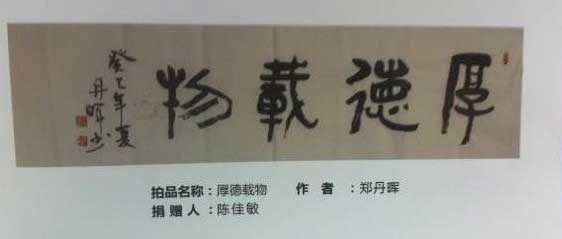 厚德載物
癸巳年夏
丹暉书
拍品名称：厚德载物 作者：郑丹晖
捐赠人：陈佳敏